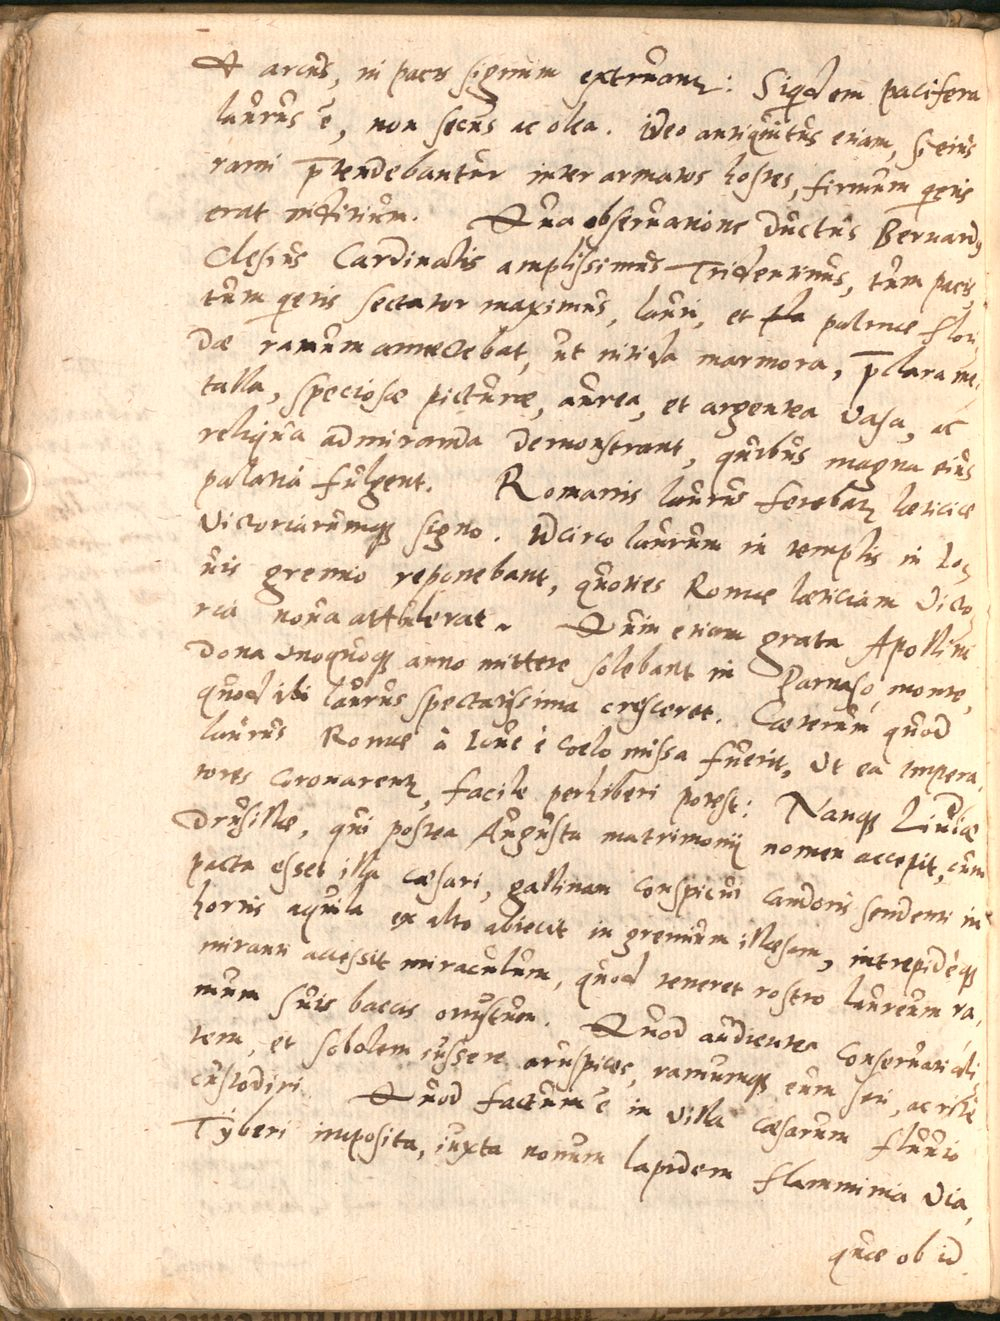 & arcus, in pacis signum extruant᷒: Siqdem pacifera
laurus ē, non secus ac olea. ideo antiquitus etiam, si eius
rami p̄tendebantur inter armatos hostes, firmum qetis
erat inditium. Qua obseruatione ductus Bernardꝰ
Clesius Cardinalis amplissimus Tridentinus, tum pacis,
tum qetis sectator maximus, lauri, et palmæ flori,
dæ ramum annectebat, ut nitida marmora, p̄clara me,
talla, speciosæ picturæ, aurea, et argentea vasa, ac
reliqua admiranda demonstrant, quibus magna eius
palatia fulgent. Romanis laurus ferebat᷒ læticiæ
Victoriarumqꝫ signo. Idcirco laurum in templis in Io,
uis gremio reponebant, quoties Romæ læticiam victo,
ria noua attulerat. Quin etiam grata Apollini
dona vnoquoqꝫ anno mittere solebant in Parnaso, monte,
quod ibi laurus spectatissima cresceret. Cæterum quod
laurus Romæ à Ioue è coelo missa fuerit, Vt ea impera,
tores coronarent᷒, facile perhiberi potest: Nanqꝫ Liuiæ
Drusillæ, qui postea Augusta matrimonij nomen accepit, cum
pacta esset illa cæsari, gallinam conspicui candoris sendenti in
hortis aquila ex alto abiecit in gremium illæsam, intrepidèqꝫ
miranti accessit miraculum, quod teneret rostro laureum ra,
mum suis baccis onustum. Quod audientes conseruari ali,
tem, et sobolem iussere aruspices, ramumqꝫ eum seri, ac ritè
custodiri. Quod factum ē in villa cæsarum fluuio
Tyberi imposita, iuxta nonum lapidem flamminia via,
quæ ob id